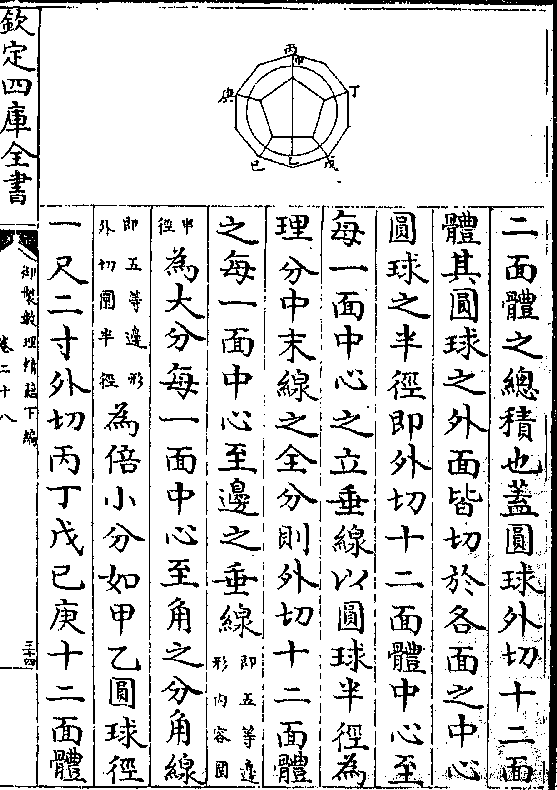 欽定四庫全書
御製數理精藴下編
卷二十八
三十四
丙
甲
丁
庚
己
乙
戊
二面體之總積也蓋圓球外切十二面
體其圓球之外面皆切於各面之中心
圓球之半徑即外切十二面體中心至
每一面中心之立垂線以圓球半徑為
理分中末線之全分則外切十二面體
之每一面中心至邊之垂線即五等邊形内容圓
半徑為大分每一面中心至角之分角線
即五等邊形外切圜半徑為倍小分如甲乙圓球徑
一尺二寸外切丙丁戊己庚十二面體